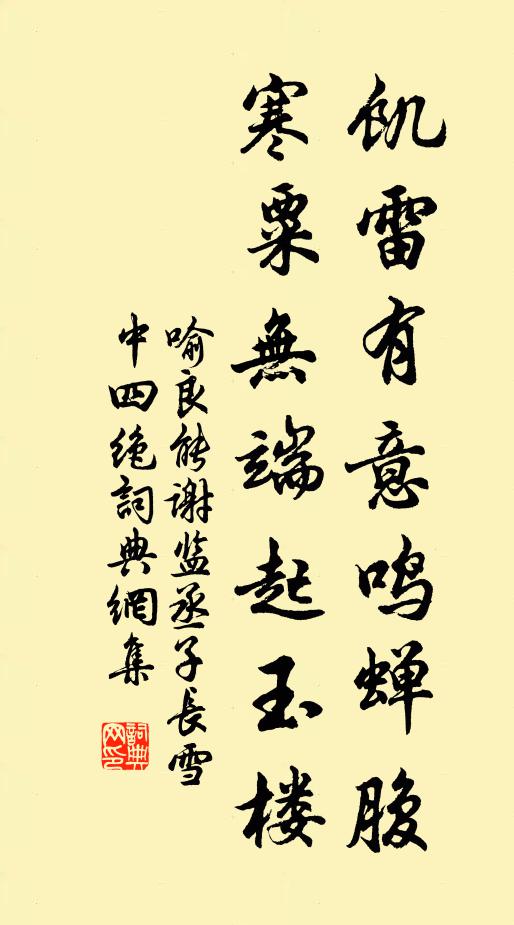 飢雷有意鸣蝉腹
寒粟無端起玉楼
喻良能谢监丞子長雪
中四绝詞典網集
詞典
网印